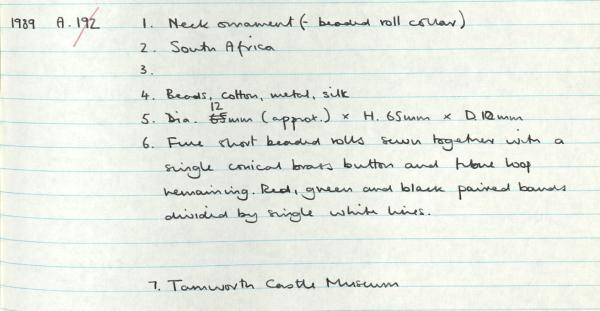 1989 A.192 1. Neck ornament (- beaded roll collar)
2. South Africa
3.
4. Beads, cotton, metal, silk
5. Dia. 12 mm (approx.) x H. 65mm x D. 12mm
6. Five short beaded rolls sewn together with a
single conical brass button and fibre loop
remaining. Red, green and black paired bands
divided by single white lines.
7. Tamworth Castle Museum